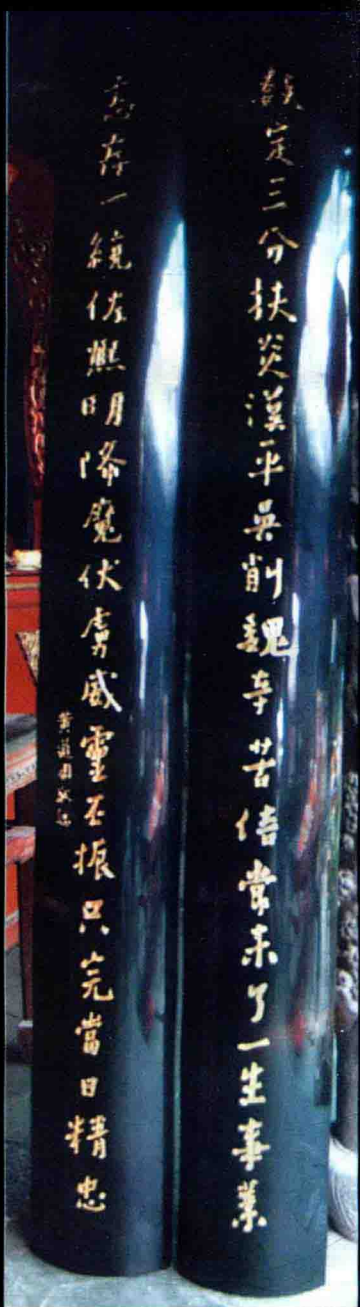 數定三分扶炎漢平吳削魏辛苦倍常未了一生事業
志存一統佐熙明降魔伏虜威靈丕振只完當日精忠
黃道周敬題